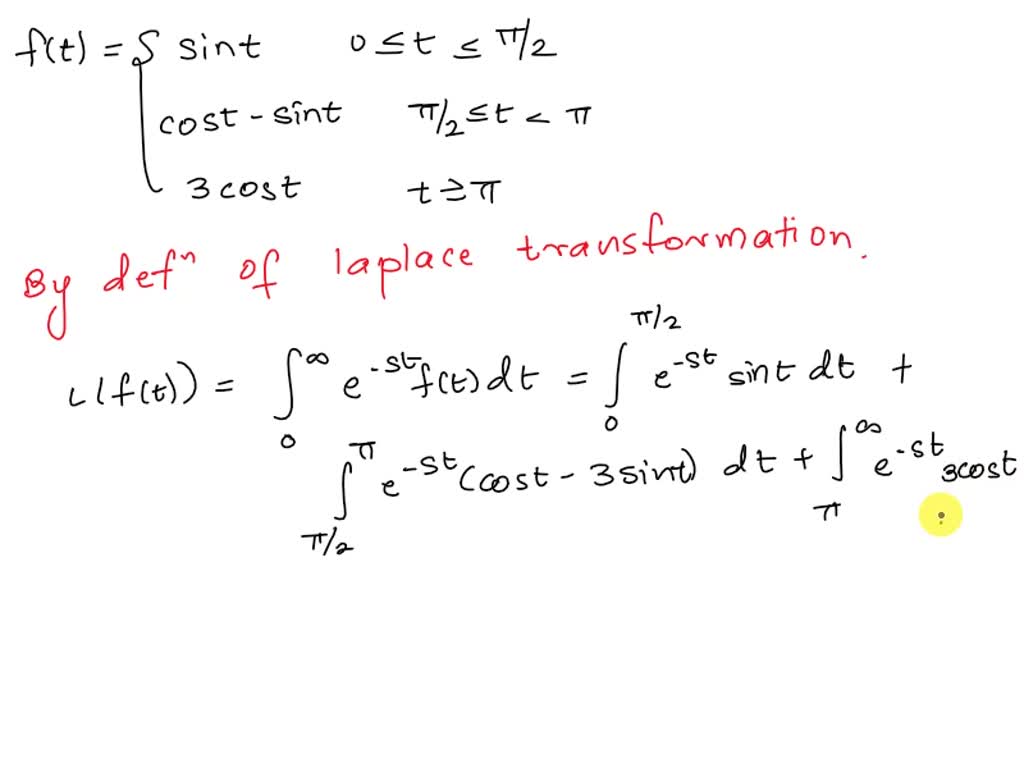 f(t) = { sint 0 ≤ t ≤ π/2
cost - sint π/2 ≤ t < π
3 cost t ≥ π
By defⁿ of laplace transformation.
L(f(t)) = ∫₀^∞ e^-st f(t) dt = ∫₀^π/2 e^-st sint dt +
∫_π/2^π e^-st (cost - 3 sint) dt + ∫_π^∞ e^-st 3cost